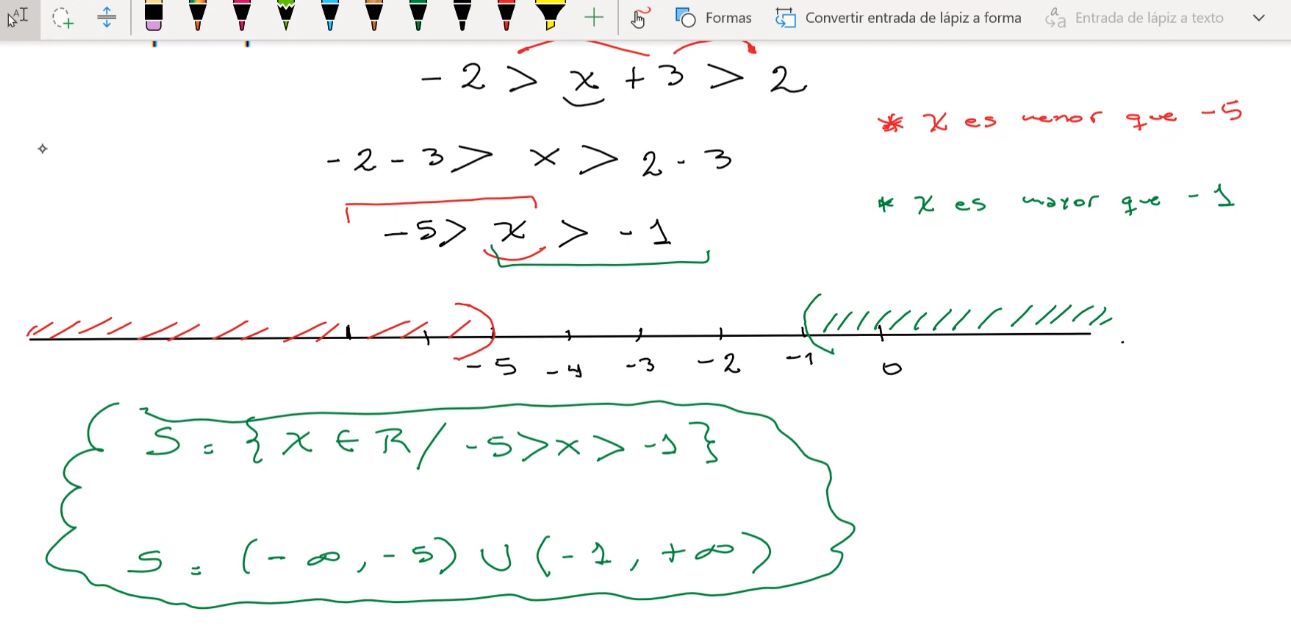 Formas
Convertir entrada de lápiz a forma
Entrada de lápiz a texto
- 2 > x + 3 > 2
* x es menor que -5
- 2 - 3 > x > 2 - 3
* x es mayor que - 1
- 5 > x > - 1
- 5 - 4 - 3 - 2 - 1 0
S = { x ∈ R / - 5 > x > - 1 }
S = ( - ∞ , - 5 ) ∪ ( - 1 , + ∞ )